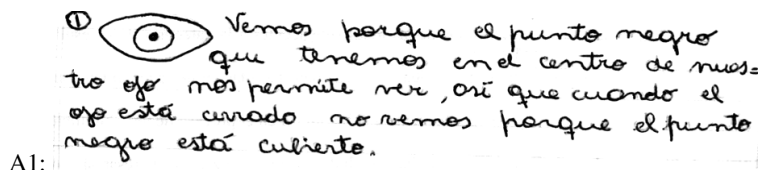 ① Vemos porque el punto negro
que tenemos en el centro de nues=
tro ojo nos permite ver, así que cuando el
ojo está cerrado no vemos porque el punto
negro está cubierto.
A1: